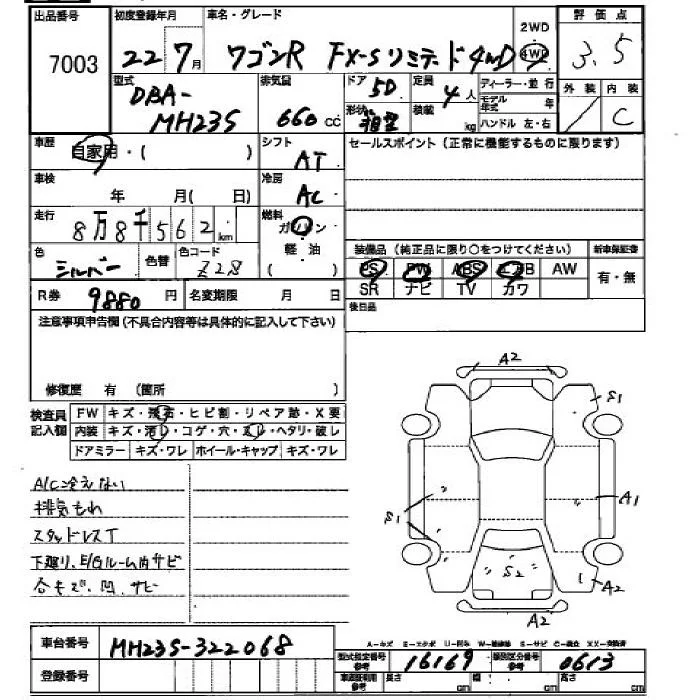 出品番号 初度登録年月 車名・グレード 2WD 評価点
7003 22 7月 ワゴンR FX-Sリミテード4WD 4WD 3.5
型式 排気量 ドア 5D 定員 4人 ディーラー・並行 外装 内装
DBA- MH23S 660cc 形状 箱型 積載 kg モデル年式 年 ハンドル 左・右 C
車歴 自家用・( ) シフト AT セールスポイント(正常に機能するものに限ります)
車検 年 月( 日) 冷房 AC
走行 8万8千562km 燃料 ガソリン
色 シルバー 色替 色コード Z2S 軽油 ( )
装備品(純正品に限り○をつけてください) 新車保証書
PS PW ABS エアB AW 有・無
SR ナビ TV カワ
R券 9880円 名変期限 月 日 後日品
注意事項申告欄(不具合内容等は具体的に記入して下さい)
修復歴 有 (箇所 )
検査員記入欄 FW キズ・飛石・ヒビ割・リペア跡・X要
内装 キズ・汚レ・コゲ・穴・スレ・ヘタリ・破レ
ドアミラー キズ・ワレ ホイール・キャップ キズ・ワレ
A/C冷えない
排気もれ
スタッドレスT
下廻り、E/Gルーム内サビ
凹、サビ
A2
S1
A1
S1
S2
A2
A2
車台番号 MH23S-322068
登録番号
A-キズ E-エクボ U-凹み S-サビ
型式指定番号 参考 16169 類別区分番号 参考 0613
参考 長さ cm 幅 cm 高さ cm